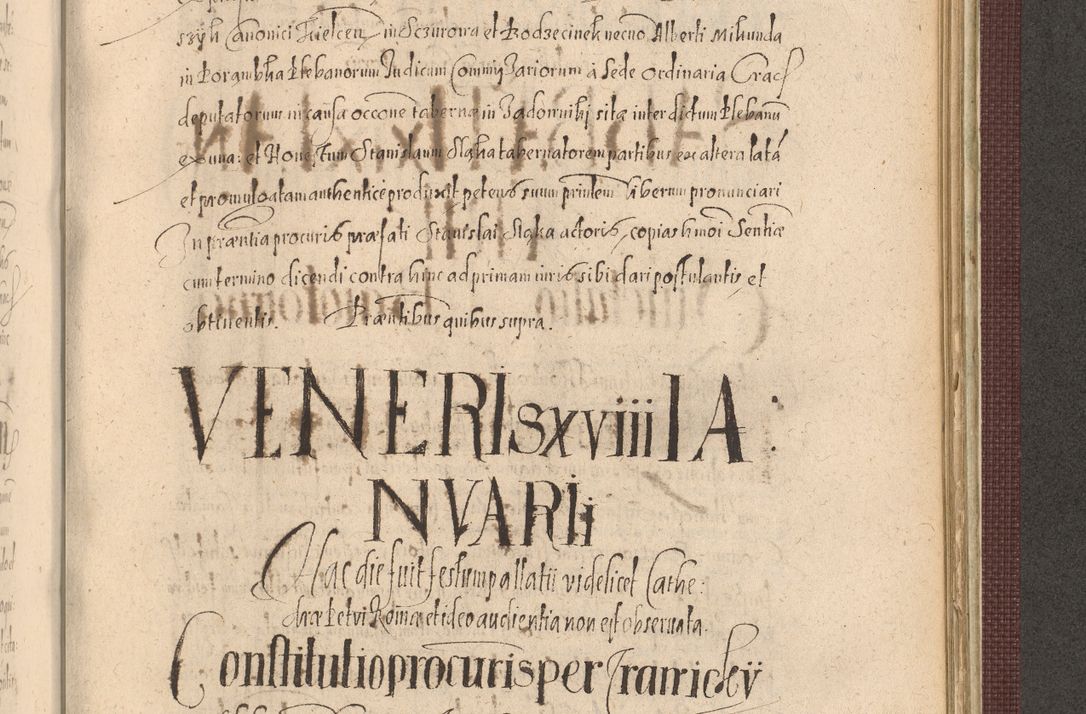 szyk Canonici Kielcen in Sczurowa et Rodzecinek necno Alberti Mikunda
in Porambka Plebanorum Iudicum Commissariorum à Sede Ordinaria Crac
deputatorum in causa occone tabernæ in Jadowniki sitæ inter dictum Plebanū
ex una: et Honestum Stanislaum Sląka tabernatorem partibus ex altera latā
et promulgatam authenticè produxit petens suum principlem liberum pronunciari
In præntia procuris præfati Stanislai Sląka actoris, copias hmōi Sentiæ
cum termino dicendi contra hinc ad primam iuris sibi dari postulantis, et
obtinentis. Præntibus quibus supra.
VENERIS xviiii IA:
NVARIi
Hac die fuit festum pallatii videlicet Cathe:
dræ Petri Romæ et ideo audientia non est observata.
Constitutio procuris per